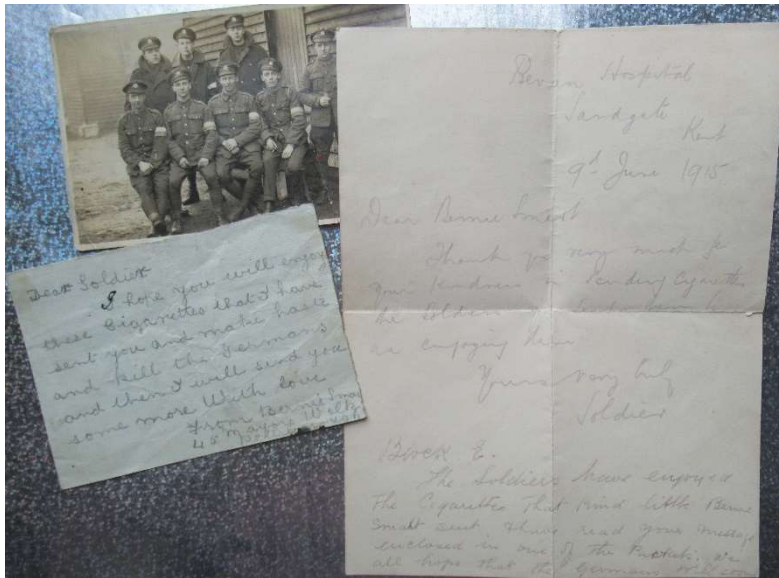 Dear Soldier
I hope you will enjoy
these Cigarettes that I have
sent you and make haste
and kill the Germans
and then I will send you
some more With love
From Bernie
48 Mayow
Bevan Hospital
Sandgate
Kent
9th June 1915
Dear Bernie Smeeth
Thank you very much for
your kindness in sending Cigarettes
the Soldiers
are enjoying them
Yours very truly
Soldier
Block E.
The Soldiers have enjoyed
The Cigarettes That Kind little Bernie
sent & have read your message
enclosed in one of the Packets. We
all hope that the Germans